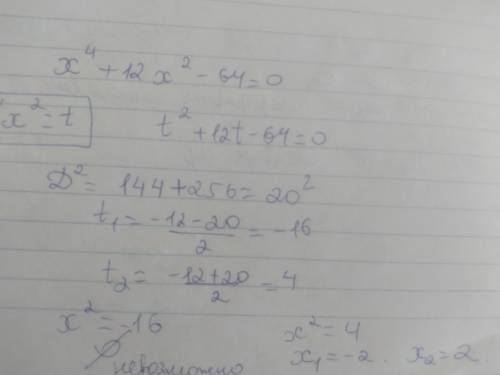 x⁴ + 12x² - 64 = 0
x² = t    t² + 12t - 64 = 0
D² = 144 + 256 = 20²
t₁ = (-12 - 20)/2 = -16
t₂ = (-12 + 20)/2 = 4
x² = -16    x² = 4
∅ невозможно    x₁ = -2    x₂ = 2